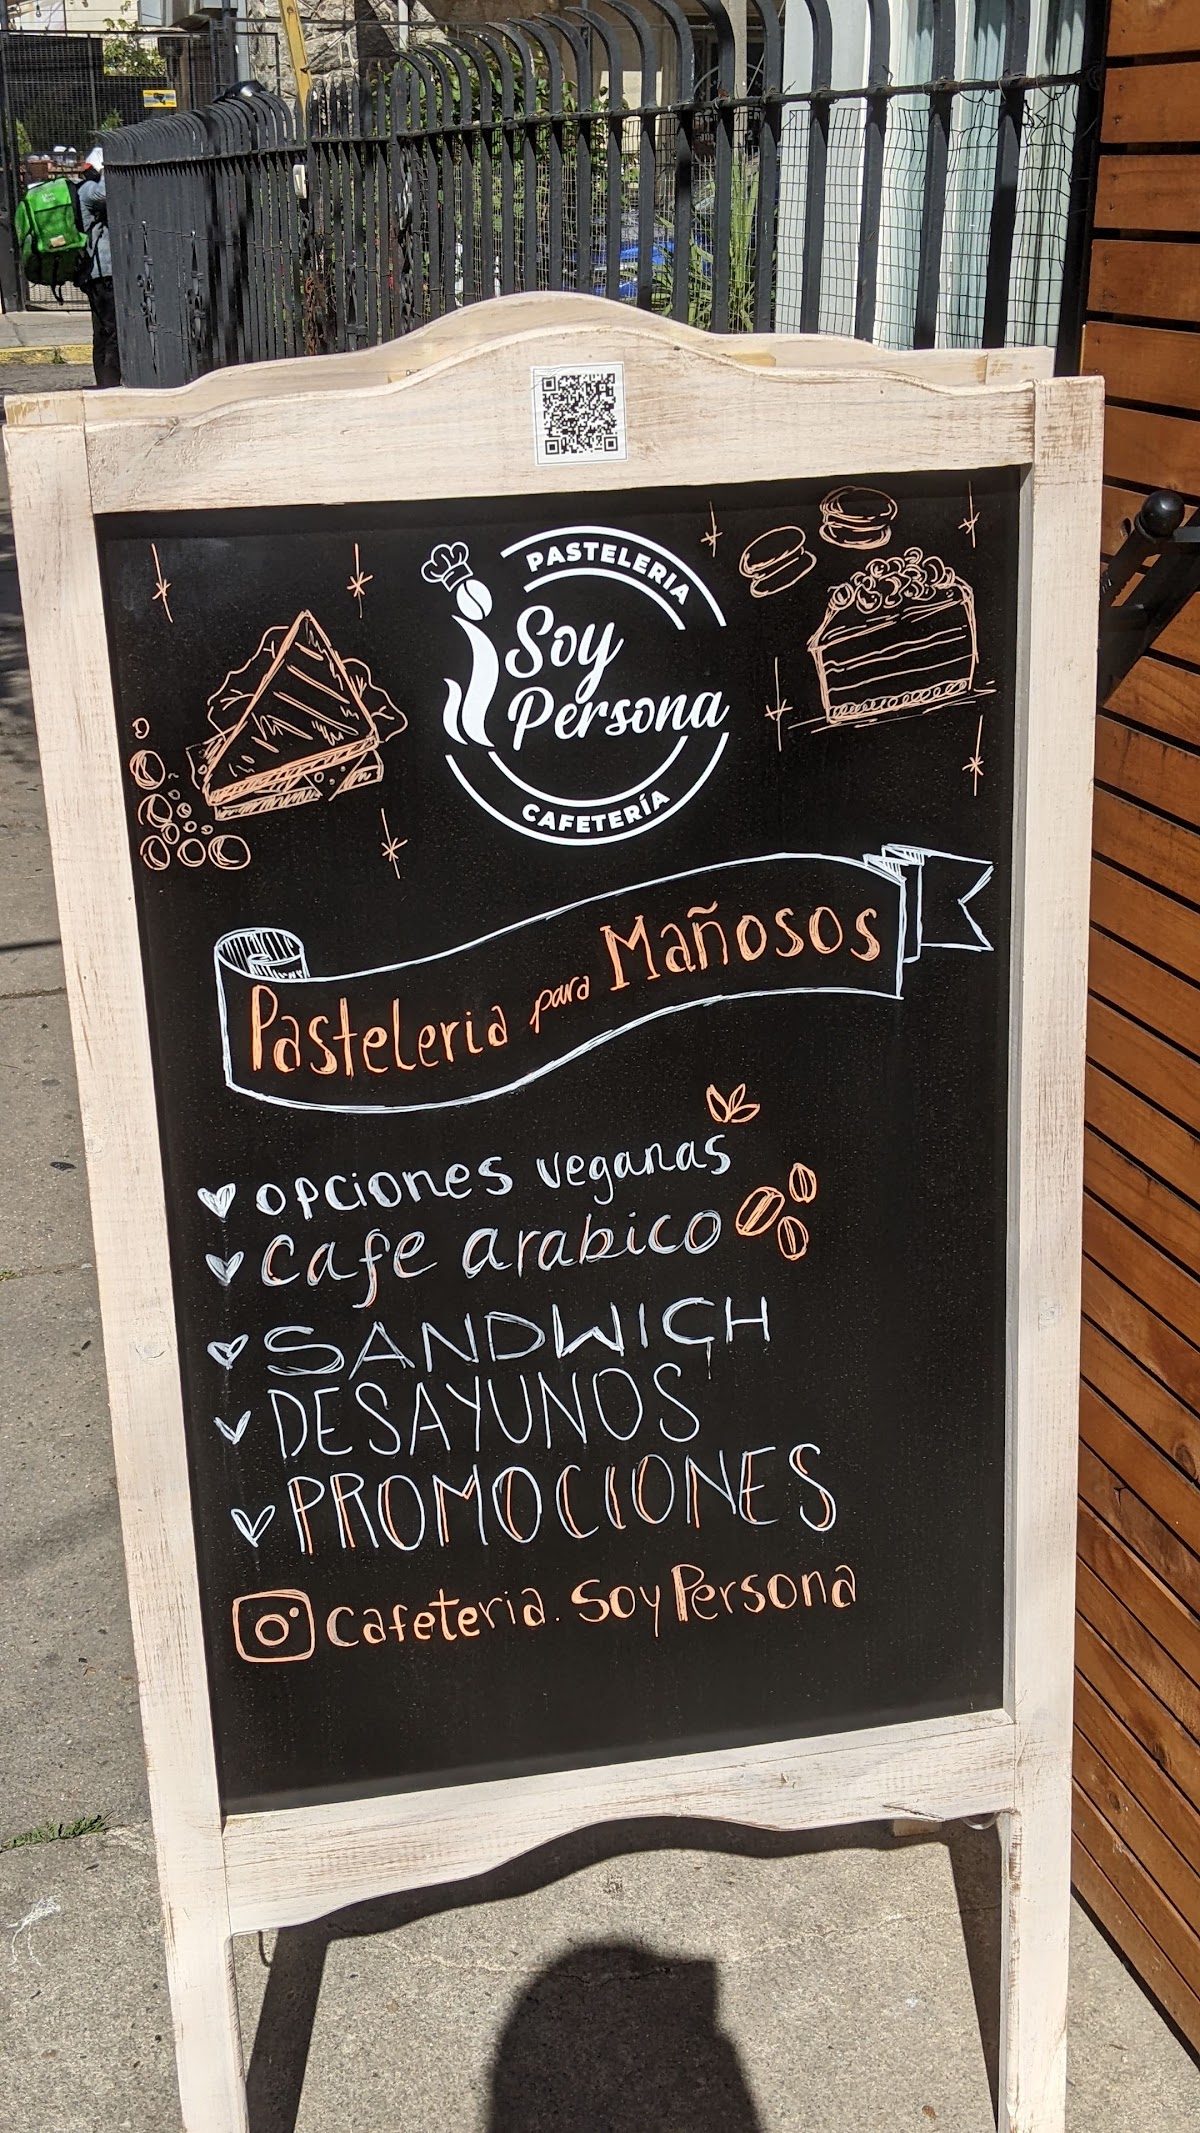 PASTELERIA
Soy
Persona
CAFETERÍA
Pasteleria para Mañosos
opciones veganas
cafe arabico
SANDWICH
DESAYUNOS
PROMOCIONES
cafeteria.soyPersona